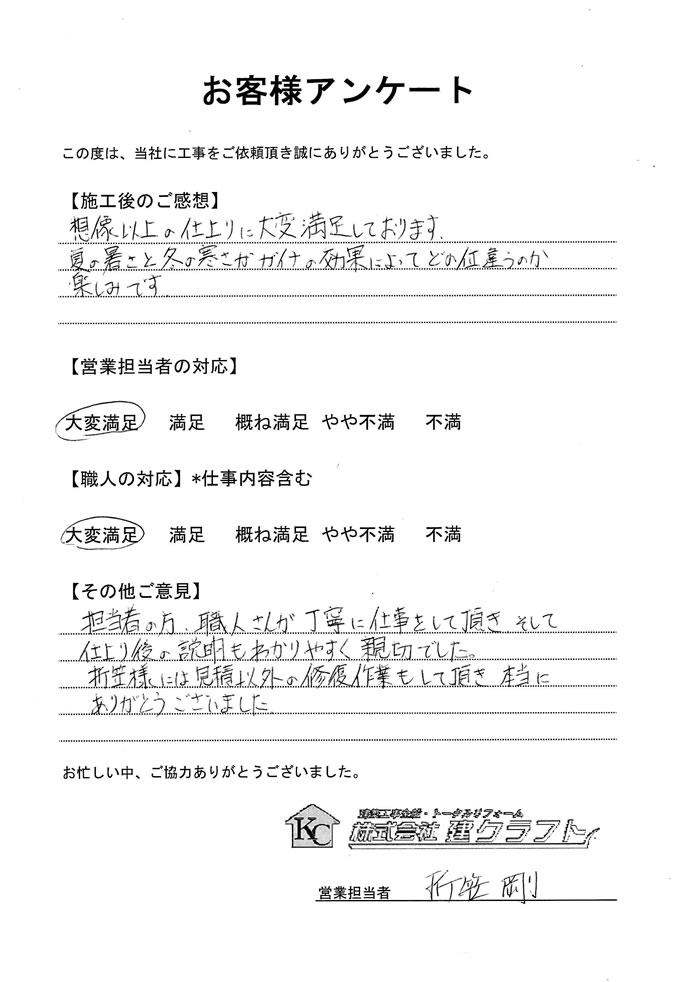 お客様アンケート
この度は、当社に工事をご依頼頂き誠にありがとうございました。
【施工後のご感想】
想像以上の仕上りに大変満足しております.
夏の暑さと冬の寒さがガイナの効果によってどの位違うのか
楽しみです
【営業担当者の対応】
大変満足 満足 概ね満足 やや不満 不満
【職人の対応】*仕事内容含む
大変満足 満足 概ね満足 やや不満 不満
【その他ご意見】
担当者の方、職人さんが丁寧に仕事をして頂き そして
仕上り後の説明もわかりやすく親切でした。
折笠様には見積以外の修復作業もして頂き 本当に
ありがとうございました
お忙しい中、ご協力ありがとうございました。
KC
建築工事全般・トータルリフォーム
株式会社 建クラフト
営業担当者 折笠 剛